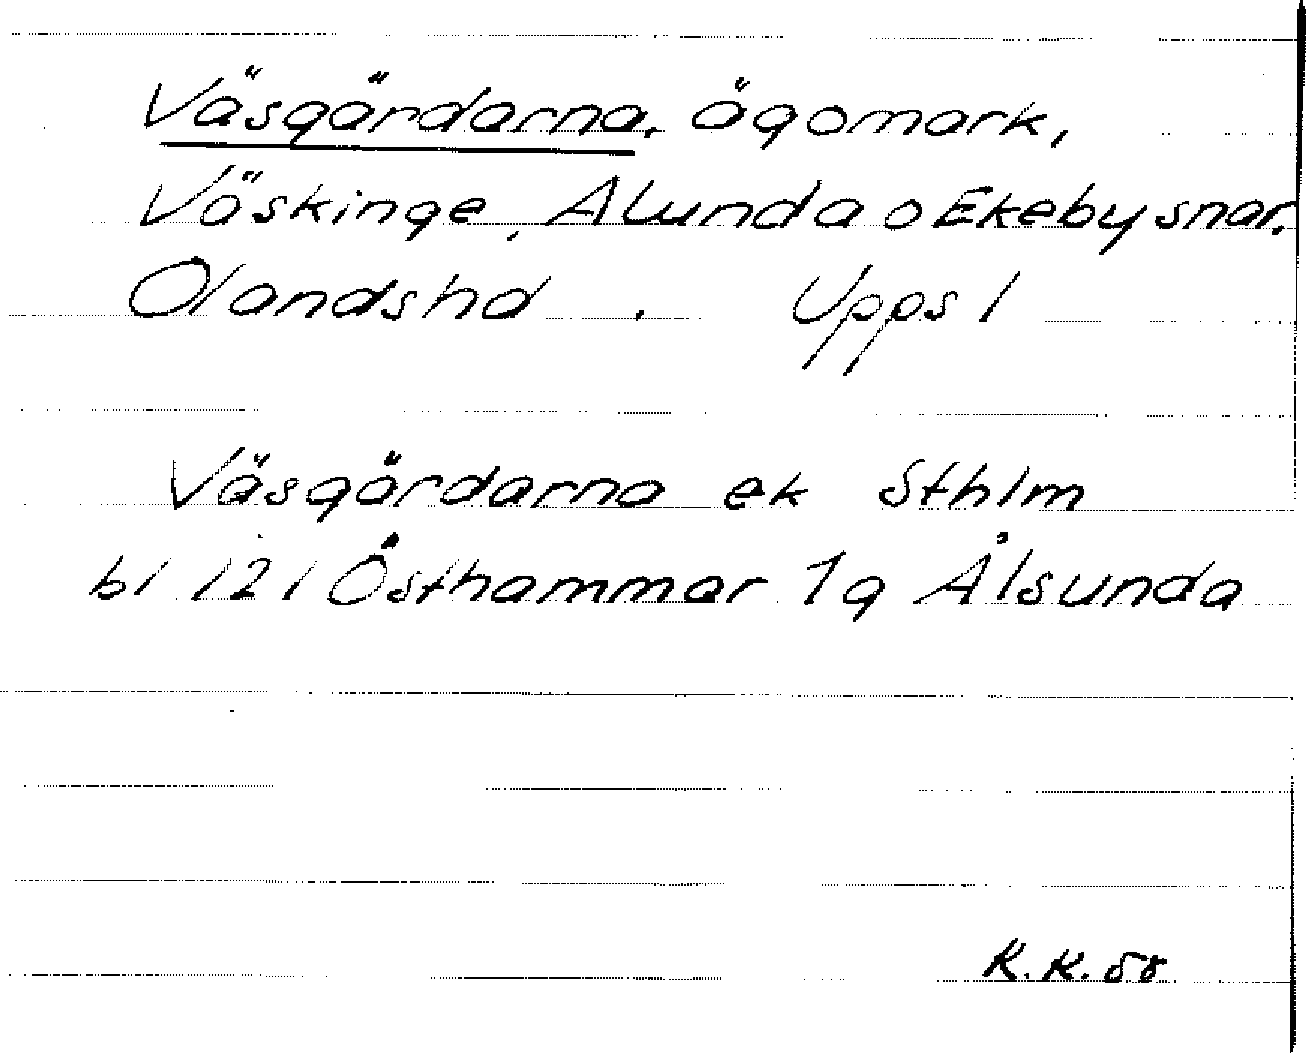 Väsgärdarna, ägomark,
Väskinge, Alunda o Ekeby snar.
Olandshd. Upps l
Väsgärdarna ek Sthlm
bl 121 Östhammar 1g Ålsunda
K.K. 58